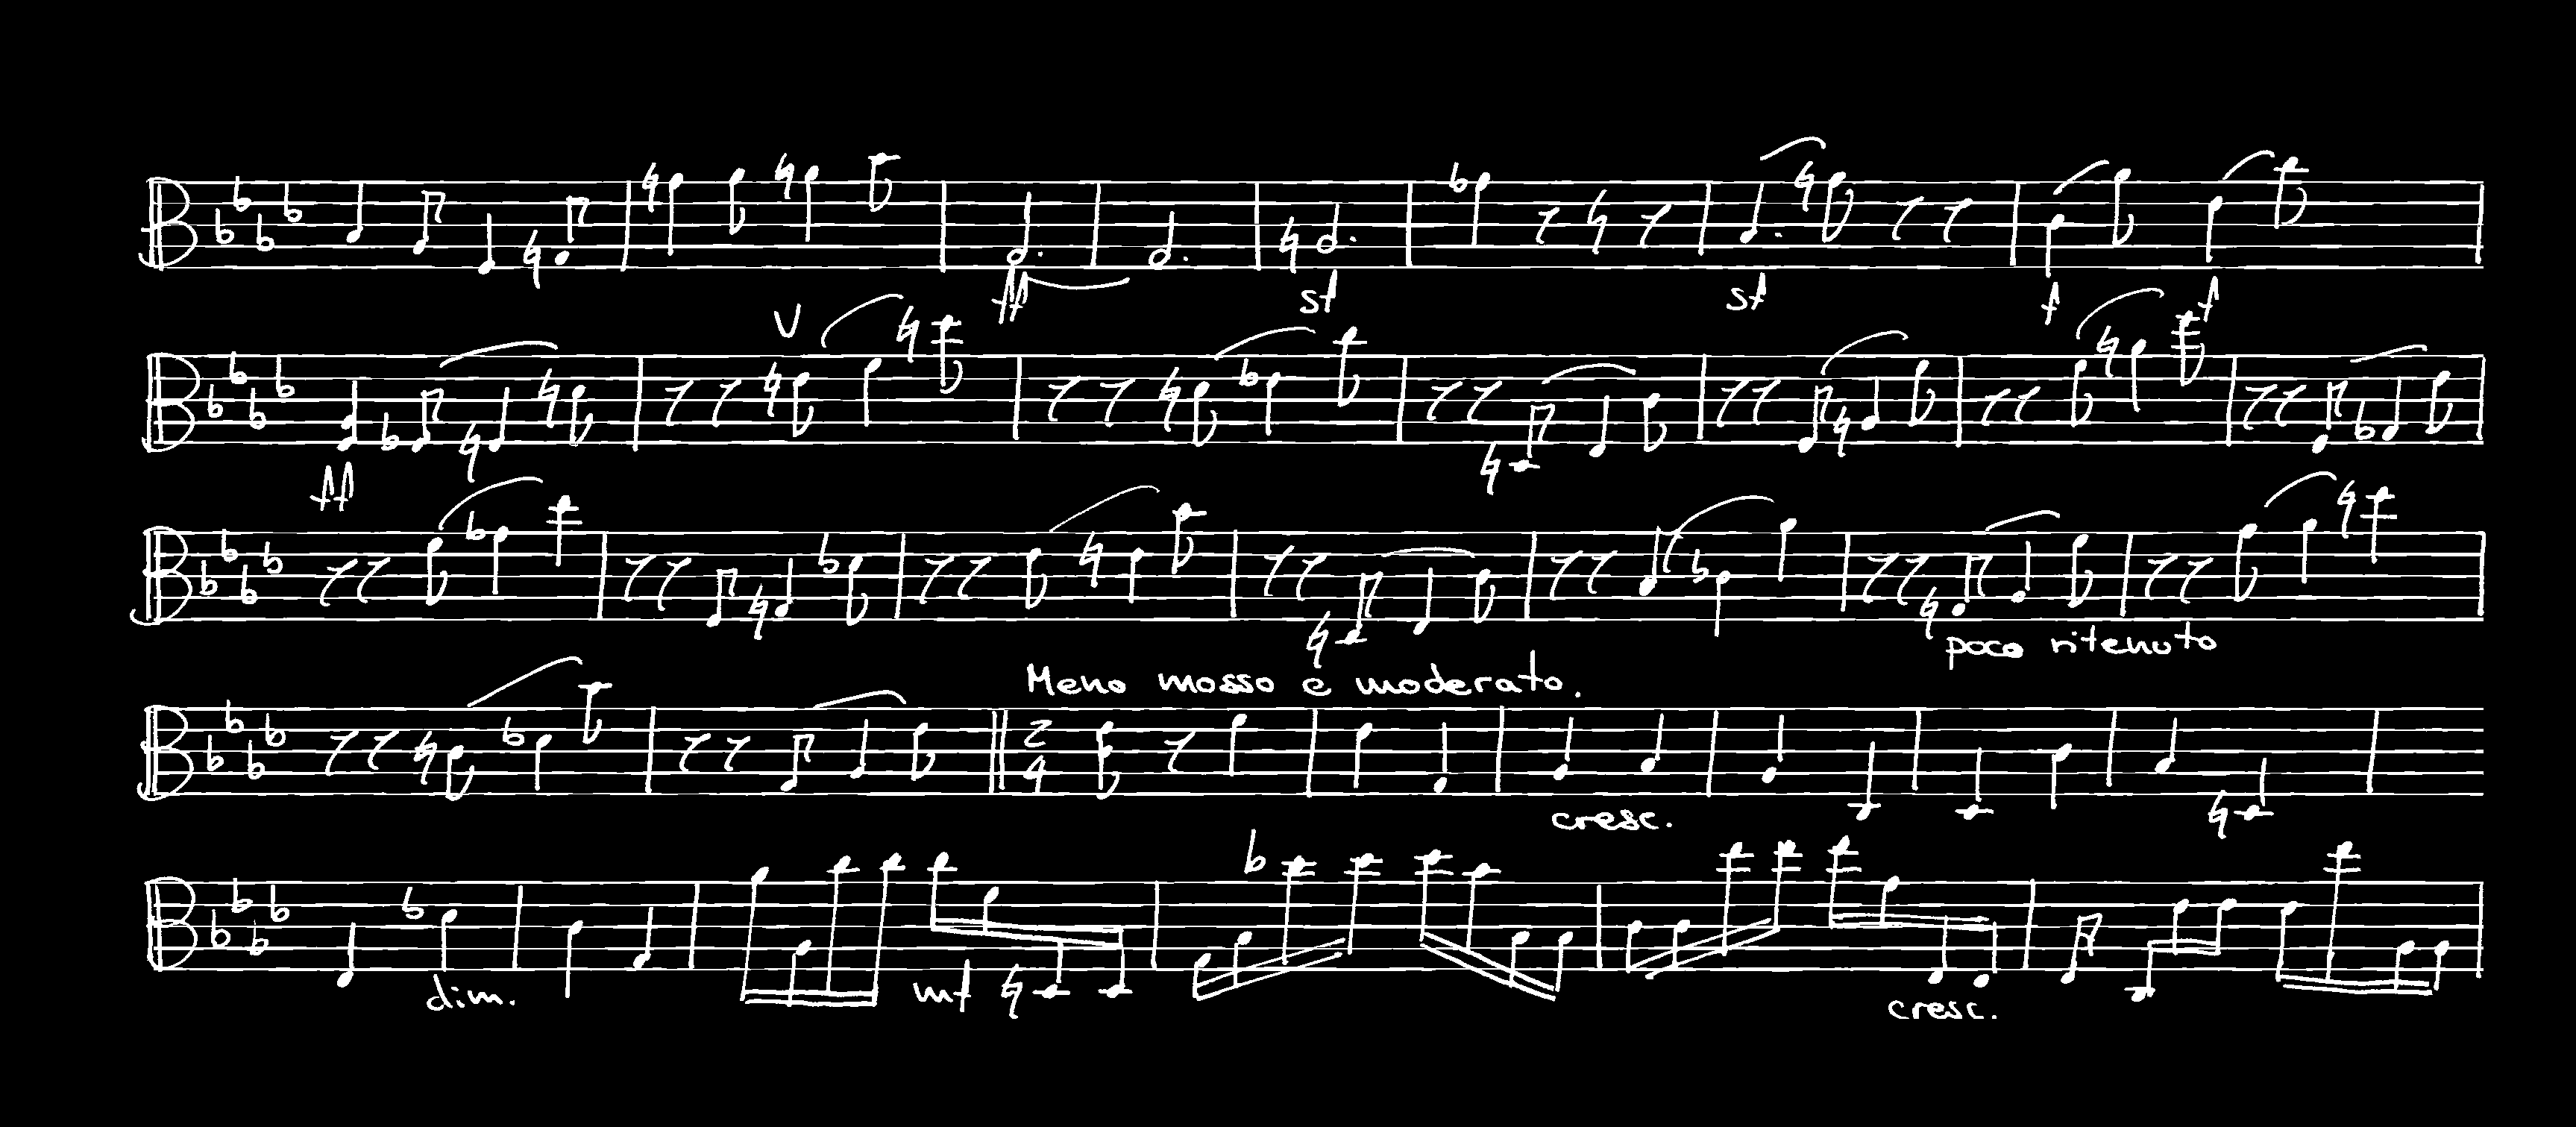 ff sf sf f f
V
ff
poco ritenuto
Meno mosso e moderato.
2
4
cresc.
dim. mf cresc.